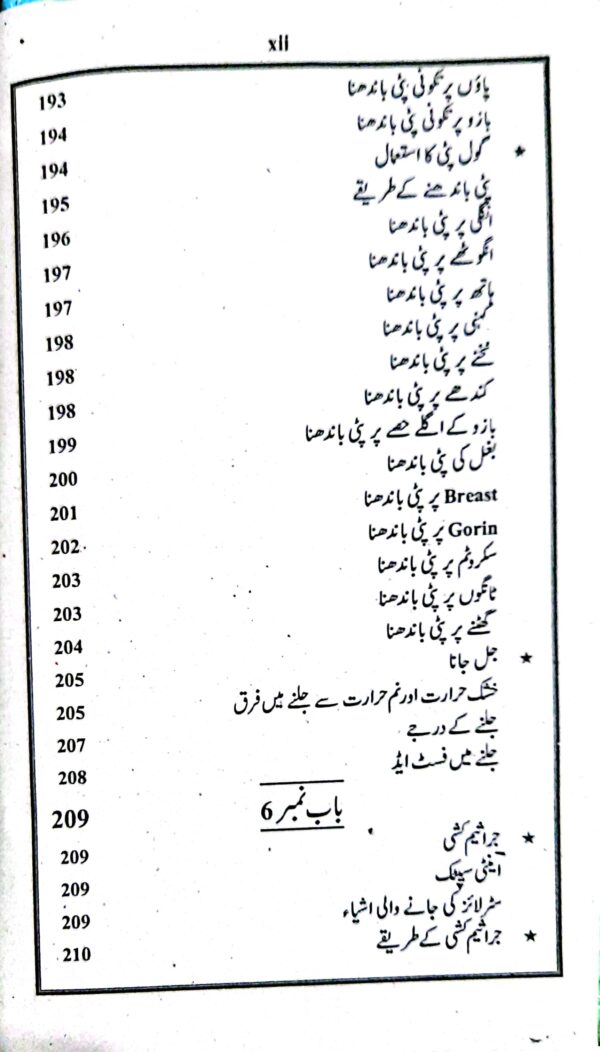 xii
پاؤں پر تکونی پٹی باندھنا 193
بازو پر تکونی پٹی باندھنا 194
★ گول پٹی کا استعمال 194
پٹی باندھنے کے طریقے 195
انگلی پر پٹی باندھنا 196
انگوٹھے پر پٹی باندھنا 197
ہاتھ پر پٹی باندھنا 197
کہنی پر پٹی باندھنا 198
ٹخنے پر پٹی باندھنا 198
کندھے پر پٹی باندھنا 198
بازو کے اگلے حصے پر پٹی باندھنا 199
بغل کی پٹی باندھنا 200
Breast پر پٹی باندھنا 201
Gorin پر پٹی باندھنا 202
سکروٹم پر پٹی باندھنا 203
ٹانگوں پر پٹی باندھنا 203
گھٹنے پر پٹی باندھنا 204
★ جل جانا 205
خشک حرارت اور نم حرارت سے جلنے میں فرق 205
جلنے کے درجے 207
جلنے میں فسٹ ایڈ 208
باب نمبر 6 209
★ جراثیم کشی 209
اینٹی سپٹک 209
سٹرلائز کی جانے والی اشیاء 209
★ جراثیم کشی کے طریقے 210